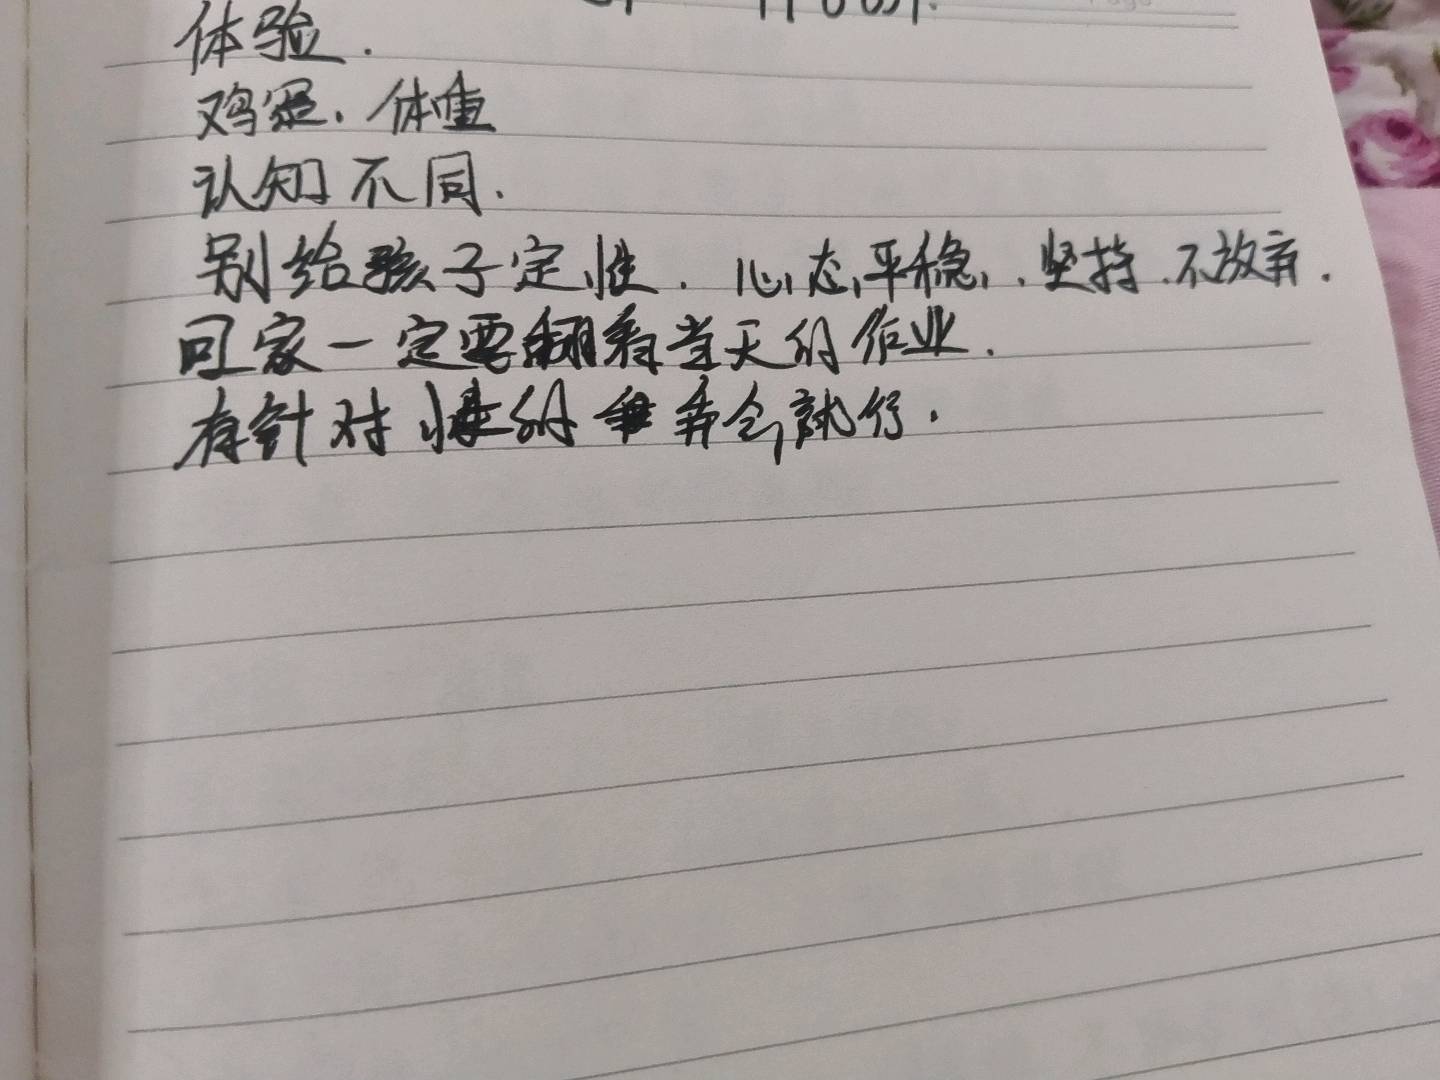 体验.
鸡
认知不同.
别给孩子定性.心态平稳,.坚持.不放弃.
回家一定要翻看当天的作业.
有针对性的 弄会就行.